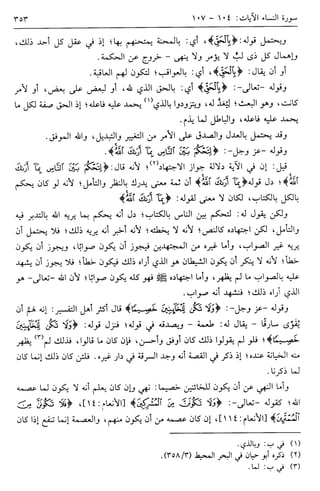 سورة النساء الآيات: ١٠٤ - ١٠٧
٣٥٣
ويحتمل قوله: ﴿بِالْحَقِّ﴾، أي: بالمحنة يمتحنهم بها؛ إذ في عقل كل أحد ذلك،
وإهمال كل ذي لب لا يؤمر ولا ينهى - خروج عن الحكمة.
أو أن يقال: ﴿بِالْحَقِّ﴾، أي: بالعواقب؛ لتكون لهم العاقبة.
وقوله -تعالى-: ﴿بِالْحَقِّ﴾ أي: بالحق الذي لله، أو لبعض على بعض، أو لأمر
كائن، وهو البعث؛ ليُعَد له، ويتزودوا بالذي(١) يحمد عليه فاعله؛ إذ الحق صفة لكل ما
يحمد عليه فاعله، والباطل لما يذم.
وقد يحتمل بالعدل والصدق على الأمر من التغيير والتبديل، والله الموفق.
وقوله -عز وجل-: ﴿لِتَحْكُمَ بَيْنَ النَّاسِ بِمَا أَرَاكَ اللَّهُ﴾.
قيل: إن في الآية دلالة جواز الاجتهاد(٢)؛ لأنه قال: ﴿لِتَحْكُمَ بَيْنَ النَّاسِ بِمَا أَرَاكَ
اللَّهُ﴾؛ دل قوله ﴿بِمَا أَرَاكَ اللَّهُ﴾ أن ثمة معنى يدرك بالنظر والتأمل؛ لأنه لو كان يحكم
بالكل بالكتاب، لكان لا معنى لقوله: ﴿بِمَا أَرَاكَ اللَّهُ﴾
ولكن يقول له: لتحكم بين الناس بالكتاب؛ دل أنه يحكم بما يريه الله بالتدبر فيه
والتأمل، لكن اجتهاده كالنص؛ لأنه لا يخطئه؛ لأنه أخبر أنه يريه ذلك؛ فلا يحتمل أن
يريه غير الصواب، وأما غيره من المجتهدين فيجوز أن يكون صوابًا، ويجوز أن يكون
خطأ؛ لأنه لا ينكر أن يكون الشيطان هو الذي أراه ذلك فيكون خطأ؛ فلا يجوز أن يشهد
عليه بالصواب ما لم يظهر، وأما اجتهاده ﷺ فهو كله يكون صوابًا؛ لأن الله -تعالى- هو
الذي أراه ذلك؛ فنشهد أنه صواب.
وقوله -عز وجل-: ﴿وَلَا تَكُن لِّلْخَائِنِينَ خَصِيمًا﴾ قال أكثر أهل التفسير: إنه هَمَّ أن
يُقَوِّي سارقًا - يقال له: طعمة - ويصدقه في قوله؛ فنزل قوله: ﴿وَلَا تَكُن لِّلْخَائِنِينَ
خَصِيمًا﴾؛ فلو لم يقولوا ذلك كان أوفق وأحسن، فإن كان ما قالوا، فذلك لم(٣) يظهر
منه الخيانة عنده؛ إذ ذكر في القصة أنه وجد السرقة في دار غيره. فلئن كان ذلك إنما كان
لما ذكرنا.
وأما النهي عن أن يكون للخائنين خصيما: نهي وإن كان يعلم أنه لا يكون لما عصمه
الله؛ كقوله -تعالى-: ﴿وَلَا تَكُونَنَّ مِنَ الْمُشْرِكِينَ﴾ [الأنعام: ١٤]، ﴿فَلَا تَكُونَنَّ مِنَ
الْمُمْتَرِينَ﴾ [الأنعام: ١١٤]، إن كان عصمه من أن يكون منهم، والعصمة إنما تنفع إذا كان
(١) في ب: وبالذي.
(٢) ذكره أبو حيان في البحر المحيط (٣٥٨/٣)
(٣) في ب: لما.